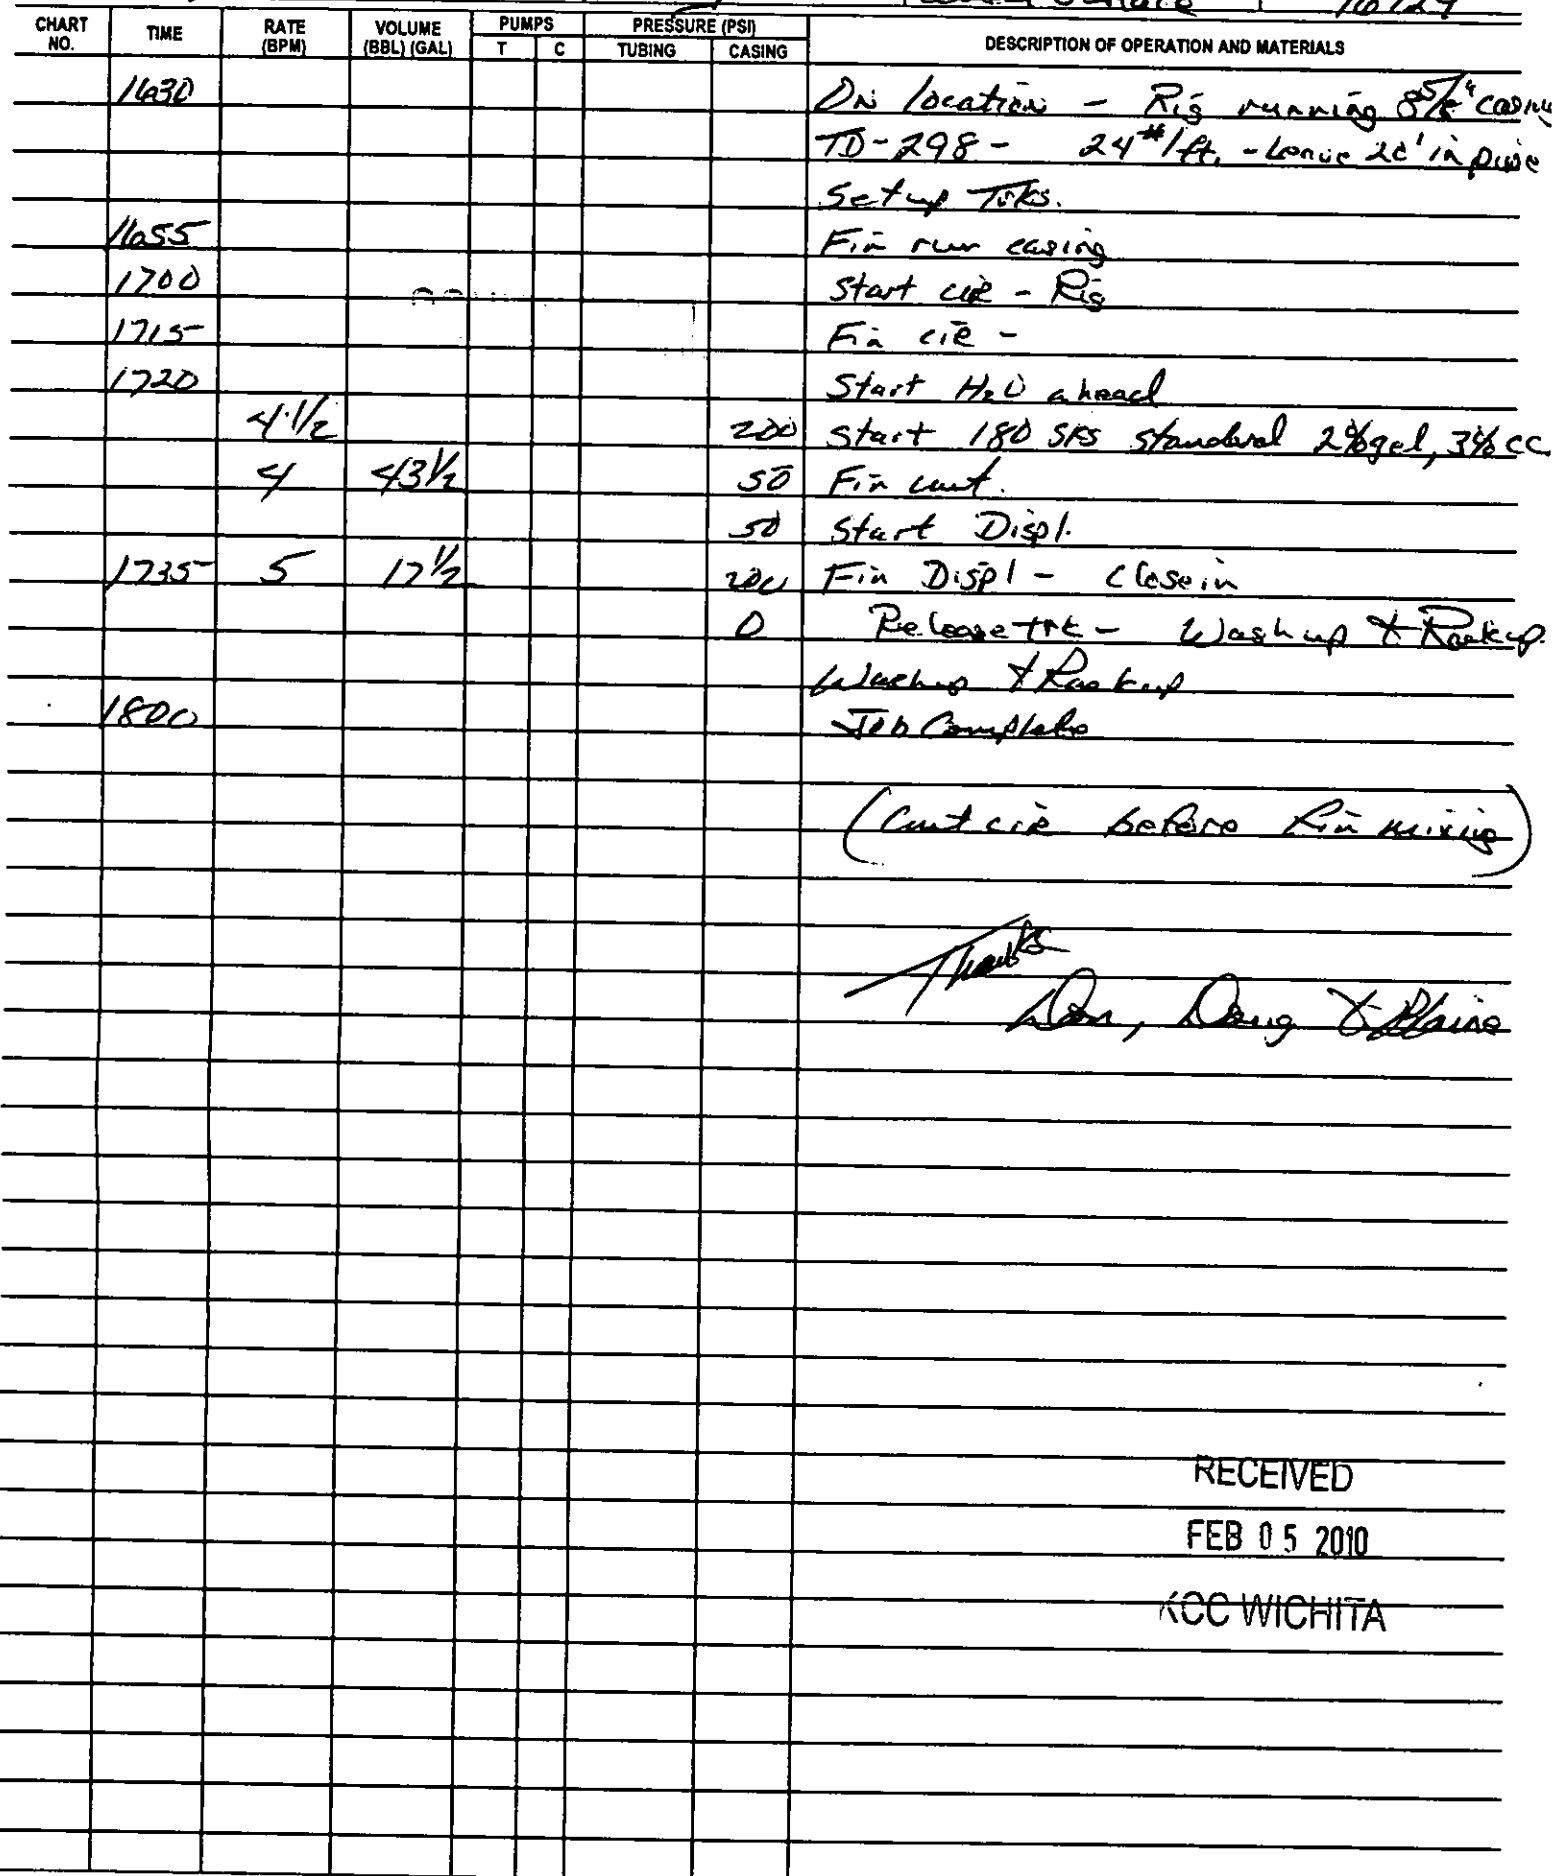 16129
CHART NO. TIME RATE (BPM) VOLUME (BBL) (GAL) PUMPS T C PRESSURE (PSI) TUBING CASING DESCRIPTION OF OPERATION AND MATERIALS
1630 On location - Rig running 8 5/8" casing
TD-298 - 24#/ft. - Leave 20' in pipe
Setup Trks.
1655 Fin run casing
1700 Start cir - Rig
1715 Fin cir -
1720 Start H2O ahead
4 1/2 200 Start 180 SKS standard 2%gel, 3%cc
4 43 1/2 50 Fin cmt.
50 Start Displ.
1735 5 17 1/2 200 Fin Displ - Close in
0 Release trk - Wash up & Rackup.
Washup & Rackup
1800 Job Complete
(Cmt cir before fin mixing)
Thanks
Don, Doug & Blaine
RECEIVED
FEB 05 2010
KCC WICHITA